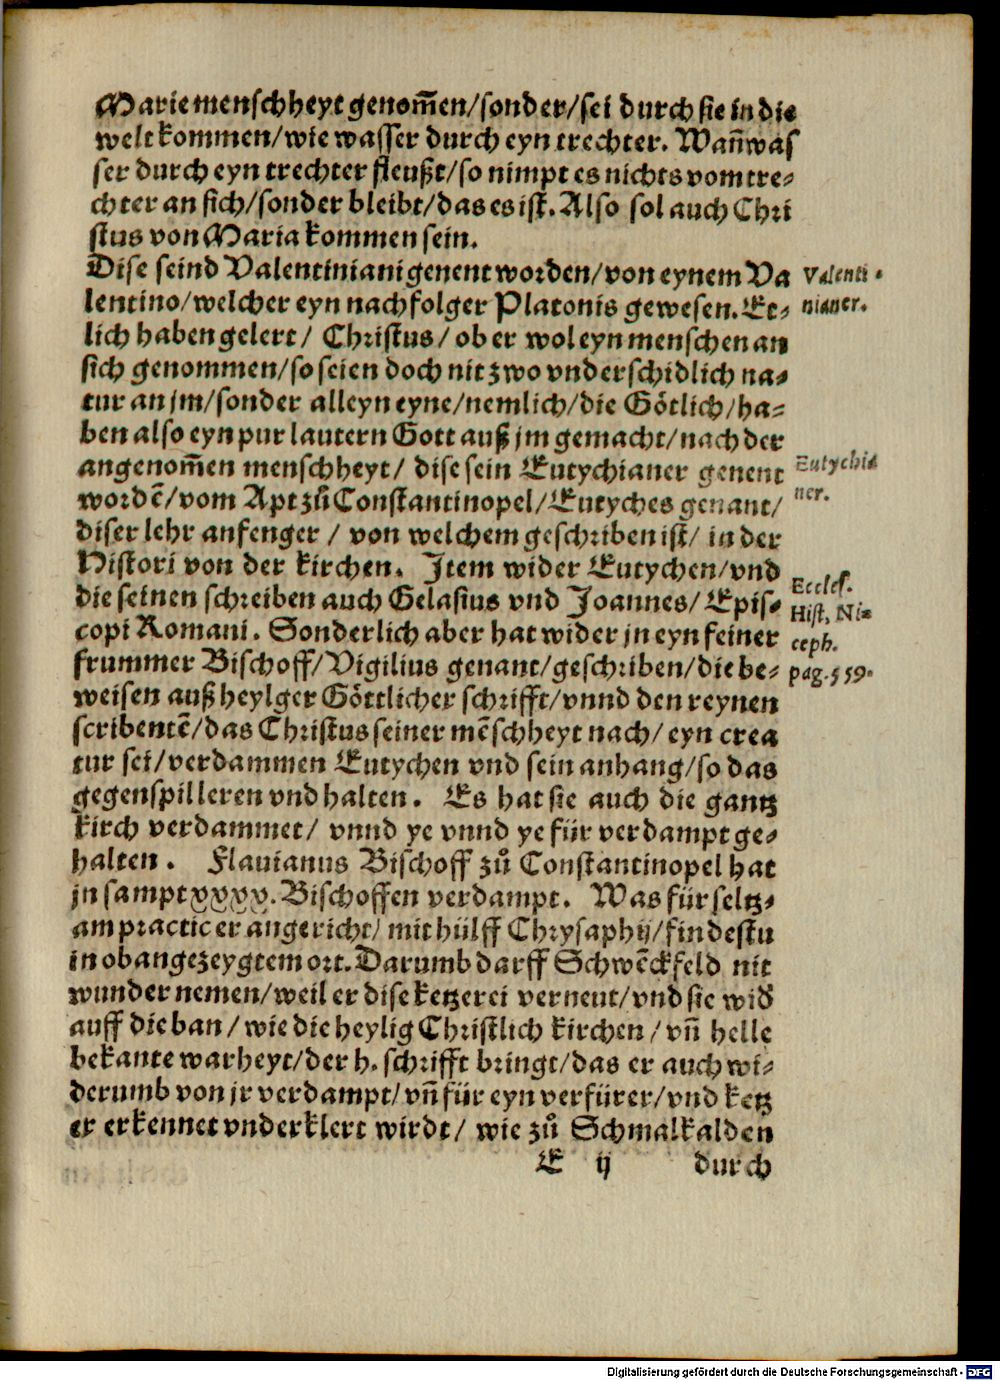 Marie menschheyt genom̄en/sonder/sei durch sie in die
welt kommen/wie wasser durch eyn trechter. Wañ was
ser durch eyn trechter fleußt/so nimpt es nichts vom tre-
chter an sich/sonder bleibt/das es ist. Also sol auch Chri
stus von Maria kommen sein.
Dise seind Valentiniani genent worden/von eynem Va
lentino/welcher eyn nachfolger Platonis gewesen. Et-
lich haben gelert/ Christus/ ob er wol eyn menschen an
sich genommen/so seien doch nit zwo vnderschidlich na-
tur an jm/sonder alleyn eyne/nemlich/die Götlich/ha-
ben also eyn pur lautern Gott auß jm gemacht/nach der
angenom̄en menschheyt/ dise sein Eutychianer genent
wordē/vom Apt zů Constantinopel/Eutyches genant/
diser lehr anfenger / von welchem geschriben ist/ in der
Histori von der kirchen. Item wider Eutychen/vnd
die seinen schreiben auch Gelasius vnd Joannes/ Epis-
copi Romani. Sonderlich aber hat wider jn eyn feiner
frummer Bischoff/Vigilius genant/geschriben/die be-
weisen auß heylger Göttlicher schrifft/vnnd den reynen
scribentē/das Christus seiner mēschheyt nach/ eyn crea
tur sei/verdammen Eutychen vnd sein anhang/so das
gegenspil leren vnd halten. Es hat sie auch die gantz
kirch verdammet/ vnnd ye vnnd ye für verdampt ge-
halten. Flauianus Bischoff zů Constantinopel hat
jn sampt xxxx. Bischoffen verdampt. Was für seltz-
am practic er angericht/ mit hülff Chrysaphij/findestu
in obangezeygtem ort. Darumb darff Schwēckfeld nit
wunder nemen/weil er dise ketzerei verneut/vnd sie wid̄
auff die ban/ wie die heylig Christlich kirchen/ vñ helle
bekante warheyt/der h. schrifft bringt/das er auch wi-
derumb von jr verdampt/vñ für eyn verfürer/vnd ketz
er erkennet vnd erklert wirdt/ wie zů Schmalkalden
E ij durch
Valenti-
nianer.
Eutychia
ner.
Eccles.
Hist. Ni-
ceph.
pag. 559.
Digitalisierung gefördert durch die Deutsche Forschungsgemeinschaft - DFG